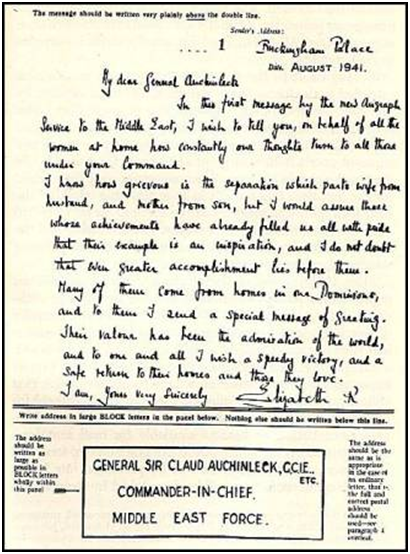 The message should be written very plainly above the double line.
Sender's Address:
.... 1 Buckingham Palace
AUGUST 1941.
My dear General Auchinleck
In this first message by the new Airgraph
Service to the Middle East, I wish to tell you, on behalf of all the
women at home how constantly our thoughts turn to all those
under your Command.
I know how grievous is the separation which parts wife from
husband, and mother from son, but I would assure those
whose achievements have already filled us all with pride
that their example is an inspiration, and I do not doubt
that even greater accomplishment lies before them.
Many of them come from homes in our Dominions,
and to them I send a special message of Greeting.
Their valour has been the admiration of the world,
and to one and all I wish a speedy victory, and a
safe return to their homes and those they love.
I am, Yours Very Sincerely Elizabeth R
Write address in large BLOCK letters in the panel below. Nothing else should be written below this line.
The address
should be
written as
large as
possible in
BLOCK letters
wholly within
this panel
GENERAL SIR CLAUD AUCHINLECK, G.C.I.E.,
ETC.
COMMANDER-IN-CHIEF.
MIDDLE EAST FORCE.
The address
should be
the same as is
appropriate
in the case of
an ordinary
letter, that is,
the full and
correct postal
address
should be
used—see
paragraph 4
overleaf.